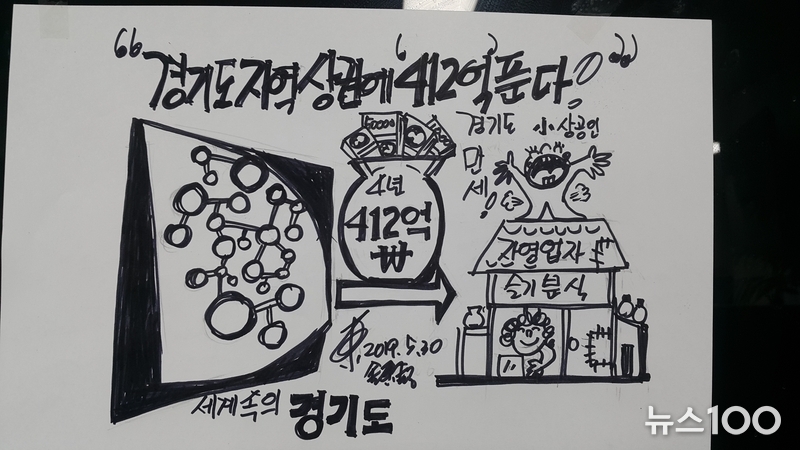 "경기도지역상권에 '412억' 푼다!"
50000
경기도 小상공인
만세!
4년
412억
₩
자영업자
슬기분식
2019. 5. 30
세계속의 경기도
뉴스100